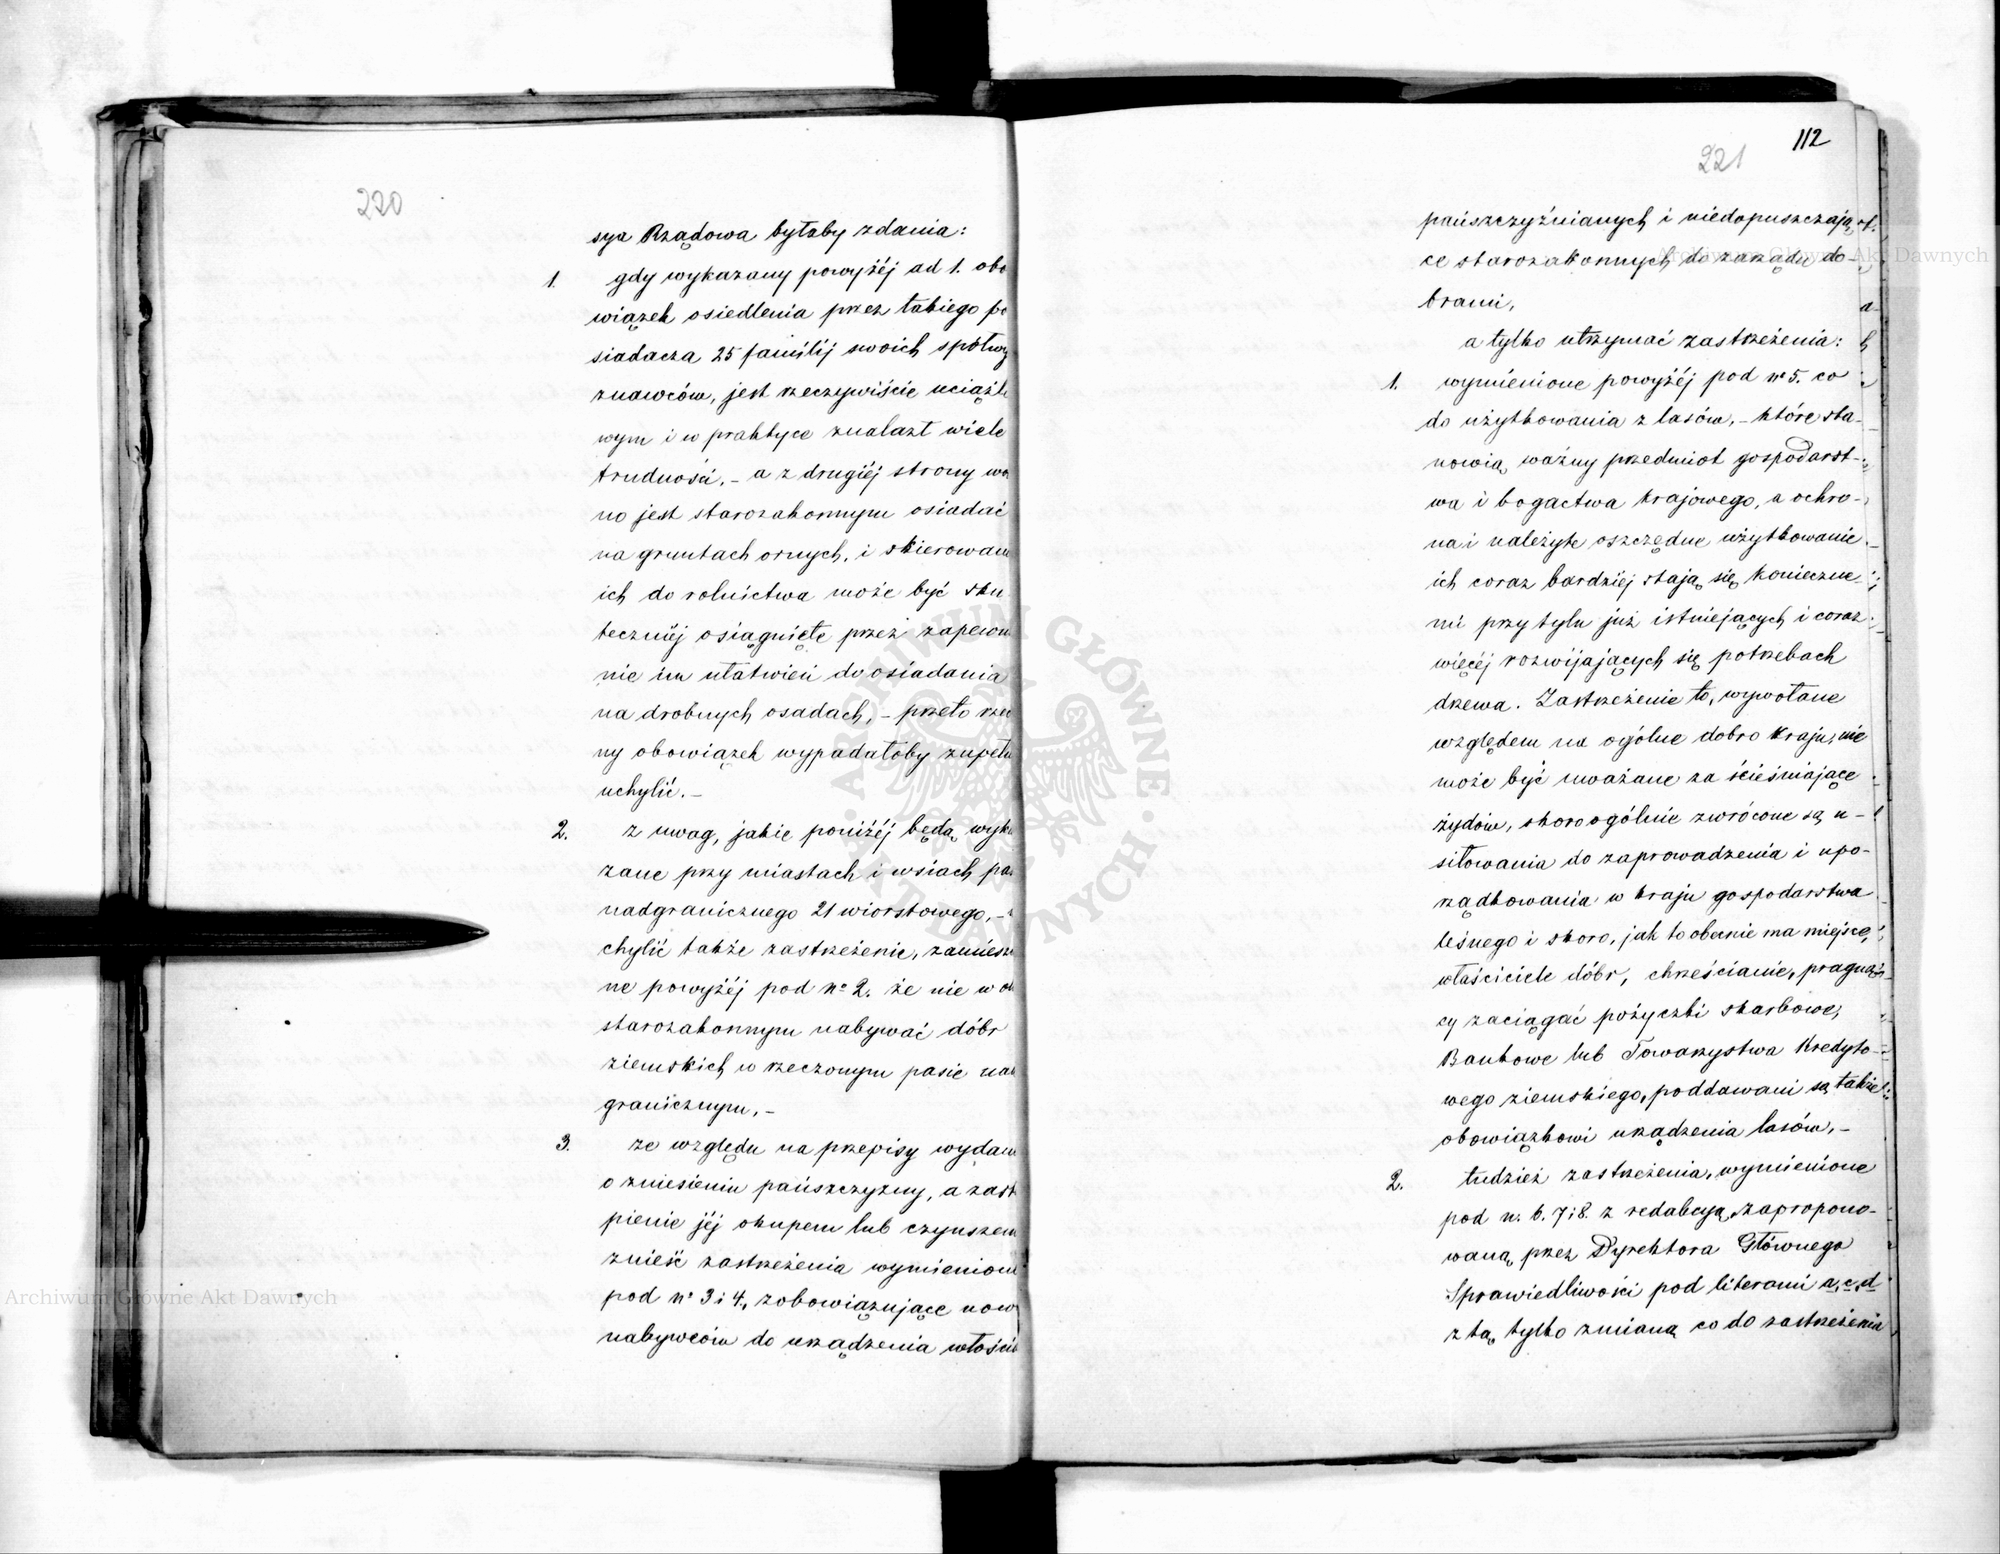 220
sya Rządowa byłaby zdania:
1. gdy wykazany powyżéj ad 1. obo
wiązek osiedlenia przez takiego po
siadacza 25 familij swoich spółwy
znawców, jest rzeczywiście uciążli
wym i w praktyce znalazł wiele
trudności, - a z drugiéj strony wol
no jest starozakonnym osiadać
na gruntach ornych, i skierowan
ich do rolnictwa może być sku
teczniéj osiągnięte przez zapewn
nie im ułatwień do osiadania
na drobnych osadach, - przeto rzeczo
ny obowiązek wypadałoby zupełn
uchylić. -
2. z uwag, jakie poniżéj będą wyka
zane przy miastach i wsiach pas
nadgranicznego 21 wiorstowego, -
chylić także zastrzeżenie, zamiesz
ne powyżéj pod No 2. że nie wol
starozakonnym nabywać dóbr
ziemskich w rzeczonym pasie nad
granicznym, -
3. ze względu na przepisy wydan
o zniesieniu pańszczyzny, a zast
pienie jéj okupem lub czynszem
znieść zastrzeżenia wymienion
pod No 3 i 4, zobowiązujące now
nabywców do urządzenia włości
112
221
pańszczyźnianych i niedopuszczają
ce starozakonnych do zarządu do-
brami,
a tylko utrzymać zastrzeżenia:
1. wymienione powyżéj pod No 5. co
do użytkowania z lasów, - które sta-
nowią ważny przedmiot gospodarst-
wa i bogactwa krajowego, a ochro-
na i należyte oszczędne użytkowanie
ich coraz bardziej stają się konieczne
mi przy tylu już istniejących i coraz
więcéj rozwijających się potrzebach
drzewa. Zastrzeżenie to, wywołane
względem na ogólne dobro kraju, nie
może być uważane za ścieśniające
żydów, skoro ogólnie zwrócone są u-
siłowania do zaprowadzenia i upo-
rządkowania w kraju gospodarstwa
leśnego i skoro, jak to obecnie ma miejsce,
właściciele dóbr, chrześcianie, pragną-
cy zaciągać pożyczki skarbowe,
Bankowe lub Towarzystwa Kredyto-
wego ziemskiego, poddawani są także
obowiązkowi urządzenia lasów, -
2. tudzież zastrzeżenia, wymienione
pod n. 6. 7 i 8. z redakcyą, zapropono-
waną przez Dyrektora Głównego
Sprawiedliwości pod literami a, c, d
z tą tylko zmianą co do zastrzeżenia
Archiwum Główne Akt Dawnych
Archiwum Główne Akt Dawnych
ARCHIWUM GŁÓWNE AKT DAWNYCH